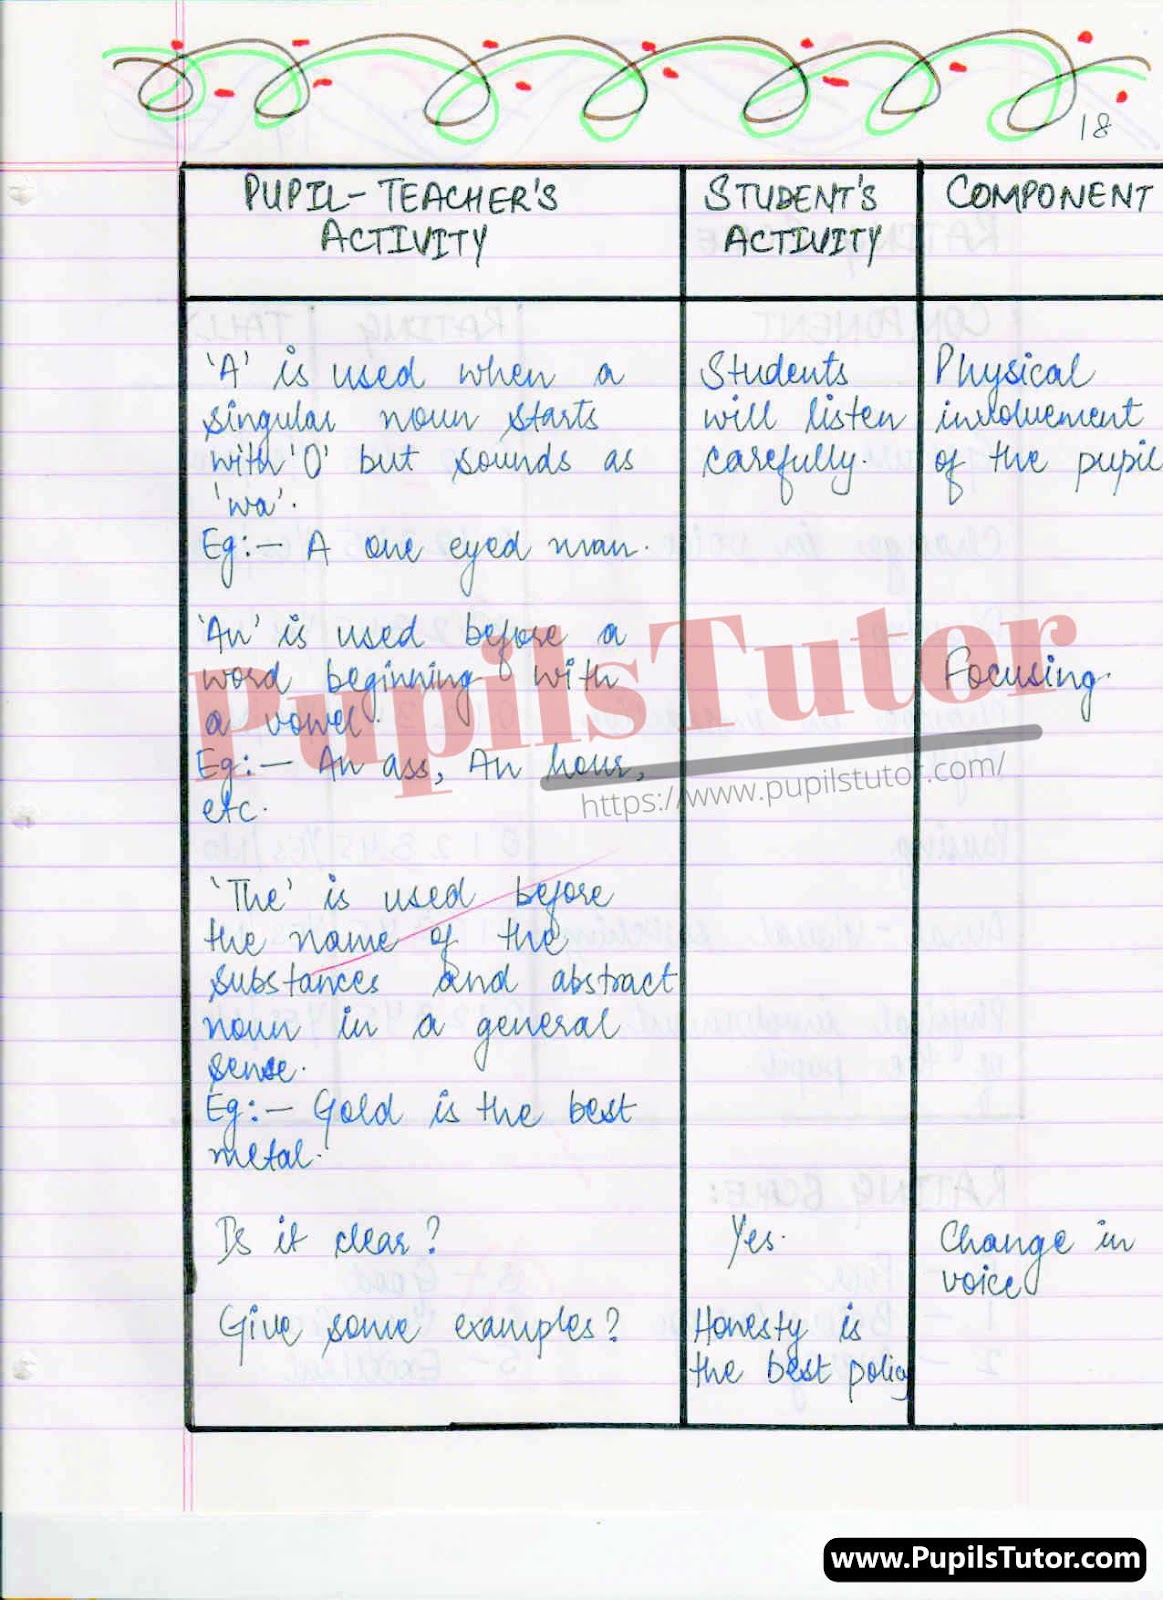 18
PUPIL-TEACHER'S
ACTIVITY
STUDENT'S
ACTIVITY
COMPONENT
'A' is used when a
singular noun starts
with 'O' but sounds as
'wa'.
Eg:- A one eyed man.
Students
will listen
carefully.
Physical
involvement
of the pupil
'An' is used before a
word beginning with
a vowel.
Eg:- An ass, An hour,
etc.
Focusing.
PupilsTutor
https://www.pupilstutor.com/
'The' is used before
the name of the
substances and abstract
noun in a general
sense.
Eg:- Gold is the best
metal.
Is it clear?
Yes.
Change in
voice
Give some examples?
Honesty is
the best policy
www.PupilsTutor.com